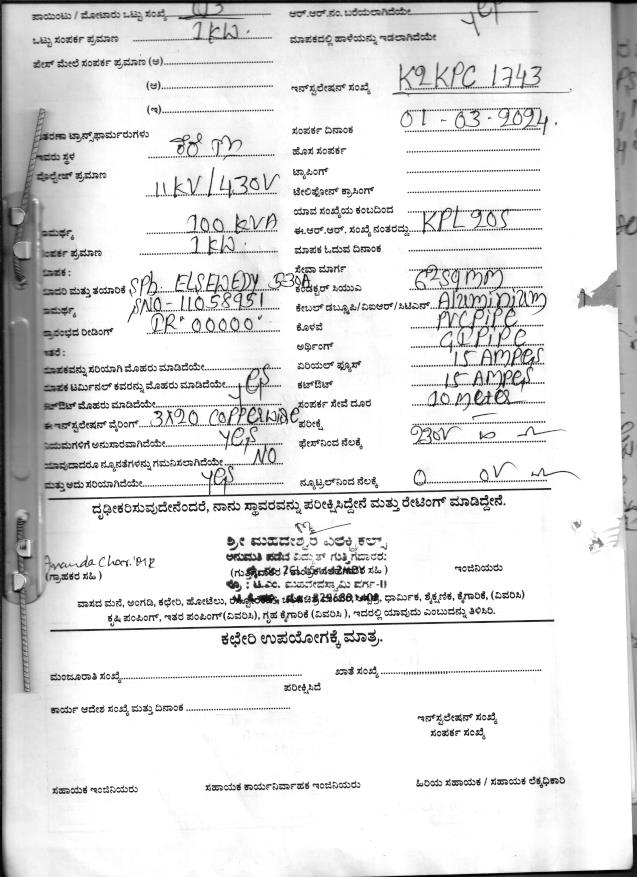 ಪಾಯಿಂಟು / ಮೋಟಾರು ಒಟ್ಟು ಸಂಖ್ಯೆ 03
ಆರ್.ಆರ್.ನಂ. ಬರೆಯಲಾಗಿದೆಯೇ yes
ಒಟ್ಟು ಸಂಪರ್ಕ ಪ್ರಮಾಣ 1KW.
ಮಾಪಕದಲ್ಲಿ ಹಾಳೆಯನ್ನು ಇಡಲಾಗಿದೆಯೇ
ಪೇಸ್ ಮೇಲೆ ಸಂಪರ್ಕ ಪ್ರಮಾಣ (ಅ)
(ಆ)
ಇನ್‌ಸ್ಟಲೇಷನ್ ಸಂಖ್ಯೆ K2KPC 1743
(ಇ)
ಸಂಪರ್ಕ ದಿನಾಂಕ 01-03-2024.
ತರಣಾ ಟ್ರಾನ್ಸ್‌ಫಾರ್ಮರುಗಳು
ಹೊಸ ಸಂಪರ್ಕ
ಇವರು ಸ್ಥಳ
ಟ್ಯಾಪಿಂಗ್
ವೋಲ್ಟೇಜ್ ಪ್ರಮಾಣ 11KV/430V
ಟೇಲಿಫೋನ್ ಕ್ರಾಸಿಂಗ್
ಯಾವ ಸಂಖ್ಯೆಯ ಕಂಬದಿಂದ
ಾಮರ್ಥ್ಯ 100 KVA
ಈ.ಆರ್.ಆರ್. ಸಂಖ್ಯೆ ನಂತರದ್ದು KPL205
ಸಂಪರ್ಕ ಪ್ರಮಾಣ 1KW.
ಮಾಪಕ ಓದುವ ದಿನಾಂಕ
ಮಾಪಕ :
ಸೇವಾ ಮಾರ್ಗ
ಮಾದರಿ ಮತ್ತು ತಯಾರಿಕೆ SPh ELSEWEDY 530A
ಕಂಡಕ್ಟರ್ ಸಿಯುಎ 6²sqmm
ಾಮರ್ಥ್ಯ SNO-11058951
ಕೇಬಲ್ ಡಬ್ಲೂಪಿ/ವಿಐಆರ್/ಸಿಟಿಎನ್ Aluminium
ಪ್ರಾರಂಭದ ರೀಡಿಂಗ್ IR" 00000"
ಕೊಳವೆ PVC PIPE
ಇತರೆ :
ಅರ್ಥಿಂಗ್ GI PIPE
ಮಾಪಕವನ್ನು ಸರಿಯಾಗಿ ಮೊಹರು ಮಾಡಿದೆಯೇ
ಏರಿಯಲ್ ಫ್ಯೂಸ್ 15 AMPES
ಮಾಪಕ ಟರ್ಮಿನಲ್ ಕವರನ್ನು ಮೊಹರು ಮಾಡಿದೆಯೇ yes
ಕಟ್‌ಔಟ್ 15 AMPES
ಕಟ್‌ಔಟ್ ಮೊಹರು ಮಾಡಿದೆಯೇ
ಸಂಪರ್ಕ ಸೇವೆ ದೂರ 10 meter
ಈ ಇನ್‌ಸ್ಟಲೇಷನ್ ವೈರಿಂಗ್ 3X20 COPPER WIRE
ಪರೀಕ್ಷೆ
ನಿಯಮಗಳಿಗೆ ಅನುಸಾರವಾಗಿದೆಯೇ yes
ಫೇಸ್‌ನಿಂದ ನೆಲಕ್ಕೆ 230V
ಯಾವುದಾದರೂ ನ್ಯೂನತೆಗಳನ್ನು ಗಮನಿಸಲಾಗಿದೆಯೇ NO
ಮತ್ತು ಅದು ಸರಿಯಾಗಿದೆಯೇ yes
ನ್ಯೂಟ್ರಲ್‌ನಿಂದ ನೆಲಕ್ಕೆ 0 0V
ದೃಢೀಕರಿಸುವುದೇನೆಂದರೆ, ನಾನು ಸ್ಥಾವರವನ್ನು ಪರೀಕ್ಷಿಸಿದ್ದೇನೆ ಮತ್ತು ರೇಟಿಂಗ್ ಮಾಡಿದ್ದೇನೆ.
ಶ್ರೀ ಮಹದೇಶ್ವರ ಎಲೆಕ್ಟ್ರಿಕಲ್ಸ್
ಅನುಮತಿ ಪಡೆದ ವಿದ್ಯುತ್ ಗುತ್ತಿಗೆದಾರರು
(ಗ್ರಾಹಕರ ಸಹಿ )
ಇಂಜಿನಿಯರು
ವಾಸದ ಮನೆ, ಅಂಗಡಿ, ಕಛೇರಿ, ಹೋಟೆಲು, ಧಾರ್ಮಿಕ, ಶೈಕ್ಷಣಿಕ, ಕೈಗಾರಿಕೆ, (ವಿವರಿಸಿ)
ಕೃಷಿ ಪಂಪಿಂಗ್, ಇತರ ಪಂಪಿಂಗ್ (ವಿವರಿಸಿ), ಗೃಹ ಕೈಗಾರಿಕೆ (ವಿವರಿಸಿ ), ಇದರಲ್ಲಿ ಯಾವುದು ಎಂಬುದನ್ನು ತಿಳಿಸಿರಿ.
ಕಛೇರಿ ಉಪಯೋಗಕ್ಕೆ ಮಾತ್ರ.
ಮಂಜೂರಾತಿ ಸಂಖ್ಯೆ
ಖಾತೆ ಸಂಖ್ಯೆ
ಪರೀಕ್ಷಿಸಿದೆ
ಕಾರ್ಯ ಆದೇಶ ಸಂಖ್ಯೆ ಮತ್ತು ದಿನಾಂಕ
ಇನ್‌ಸ್ಟಲೇಷನ್ ಸಂಖ್ಯೆ
ಸಂಪರ್ಕ ಸಂಖ್ಯೆ
ಸಹಾಯಕ ಇಂಜಿನಿಯರು
ಸಹಾಯಕ ಕಾರ್ಯನಿರ್ವಾಹಕ ಇಂಜಿನಿಯರು
ಹಿರಿಯ ಸಹಾಯಕ / ಸಹಾಯಕ ಲೆಕ್ಕಧಿಕಾರಿ